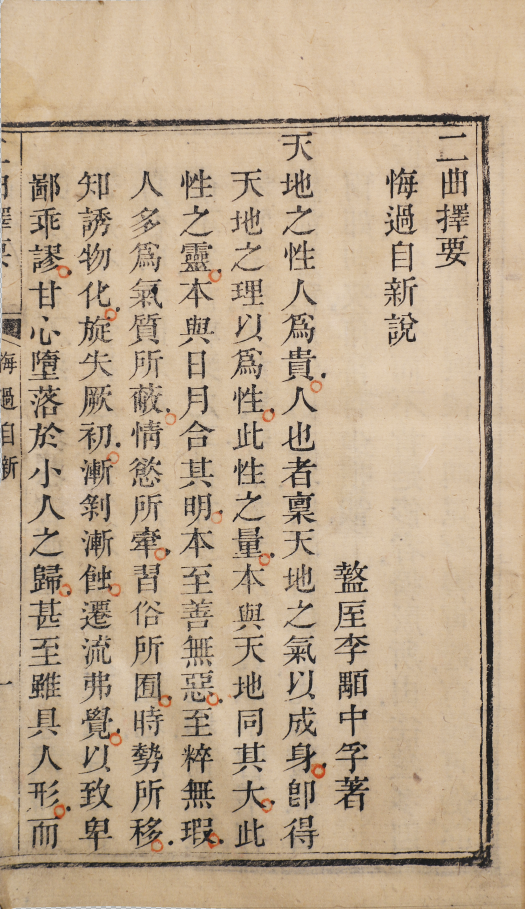 二曲擇要
悔過自新說
盩厔李顒中孚著
天地之性人爲貴人也者稟天地之氣以成身卽得
天地之理以爲性此性之量本與天地同其大此
性之靈本與日月合其明本至善無惡至粹無瑕
人多爲氣質所蔽情慾所牽習俗所囿時勢所移
知誘物化旋失厥初漸剝漸蝕遷流弗覺以致卑
鄙乖謬甘心墮落於小人之歸甚至雖具人形而
二曲擇要
悔過自新
一